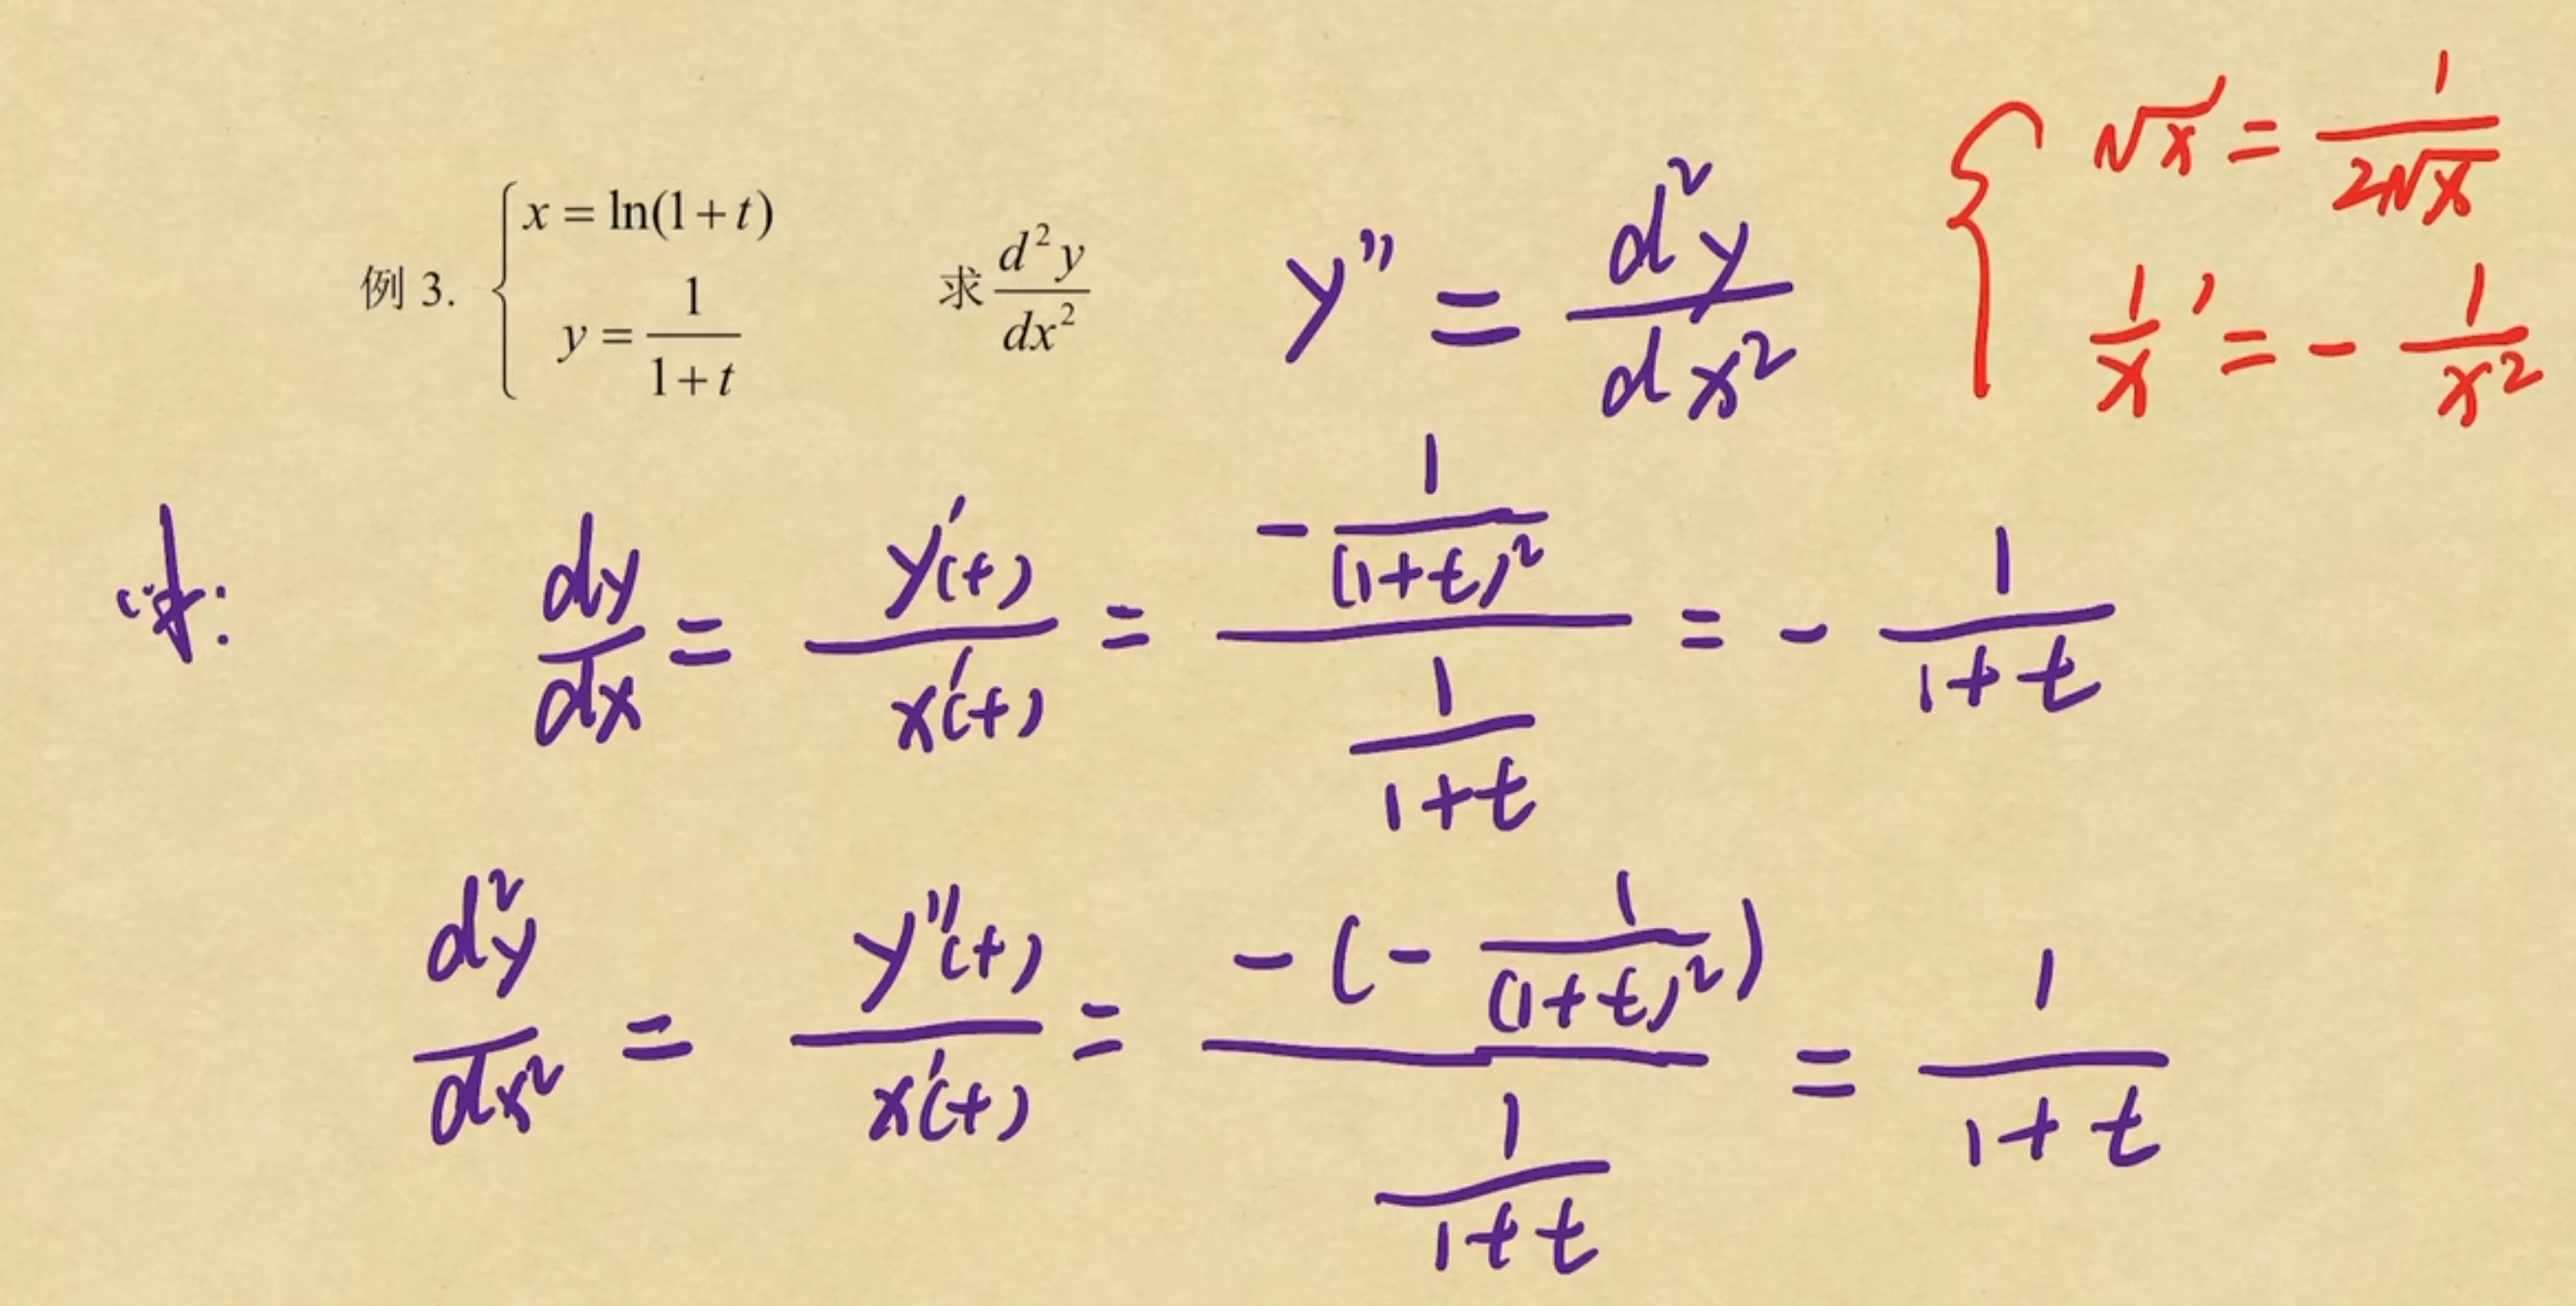 例 3. { x = ln(1+t)
y = 1/(1+t)
求 d²y/dx²
y'' = d²y/dx²
{ √x' = 1/(2√x)
1/x ' = - 1/x²
dy/dx = y'(t)/x'(t) = (- 1/(1+t)²)/(1/(1+t)) = - 1/(1+t)
d²y/dx² = y''(t)/x'(t) = (-(- 1/(1+t)²))/(1/(1+t)) = 1/(1+t)